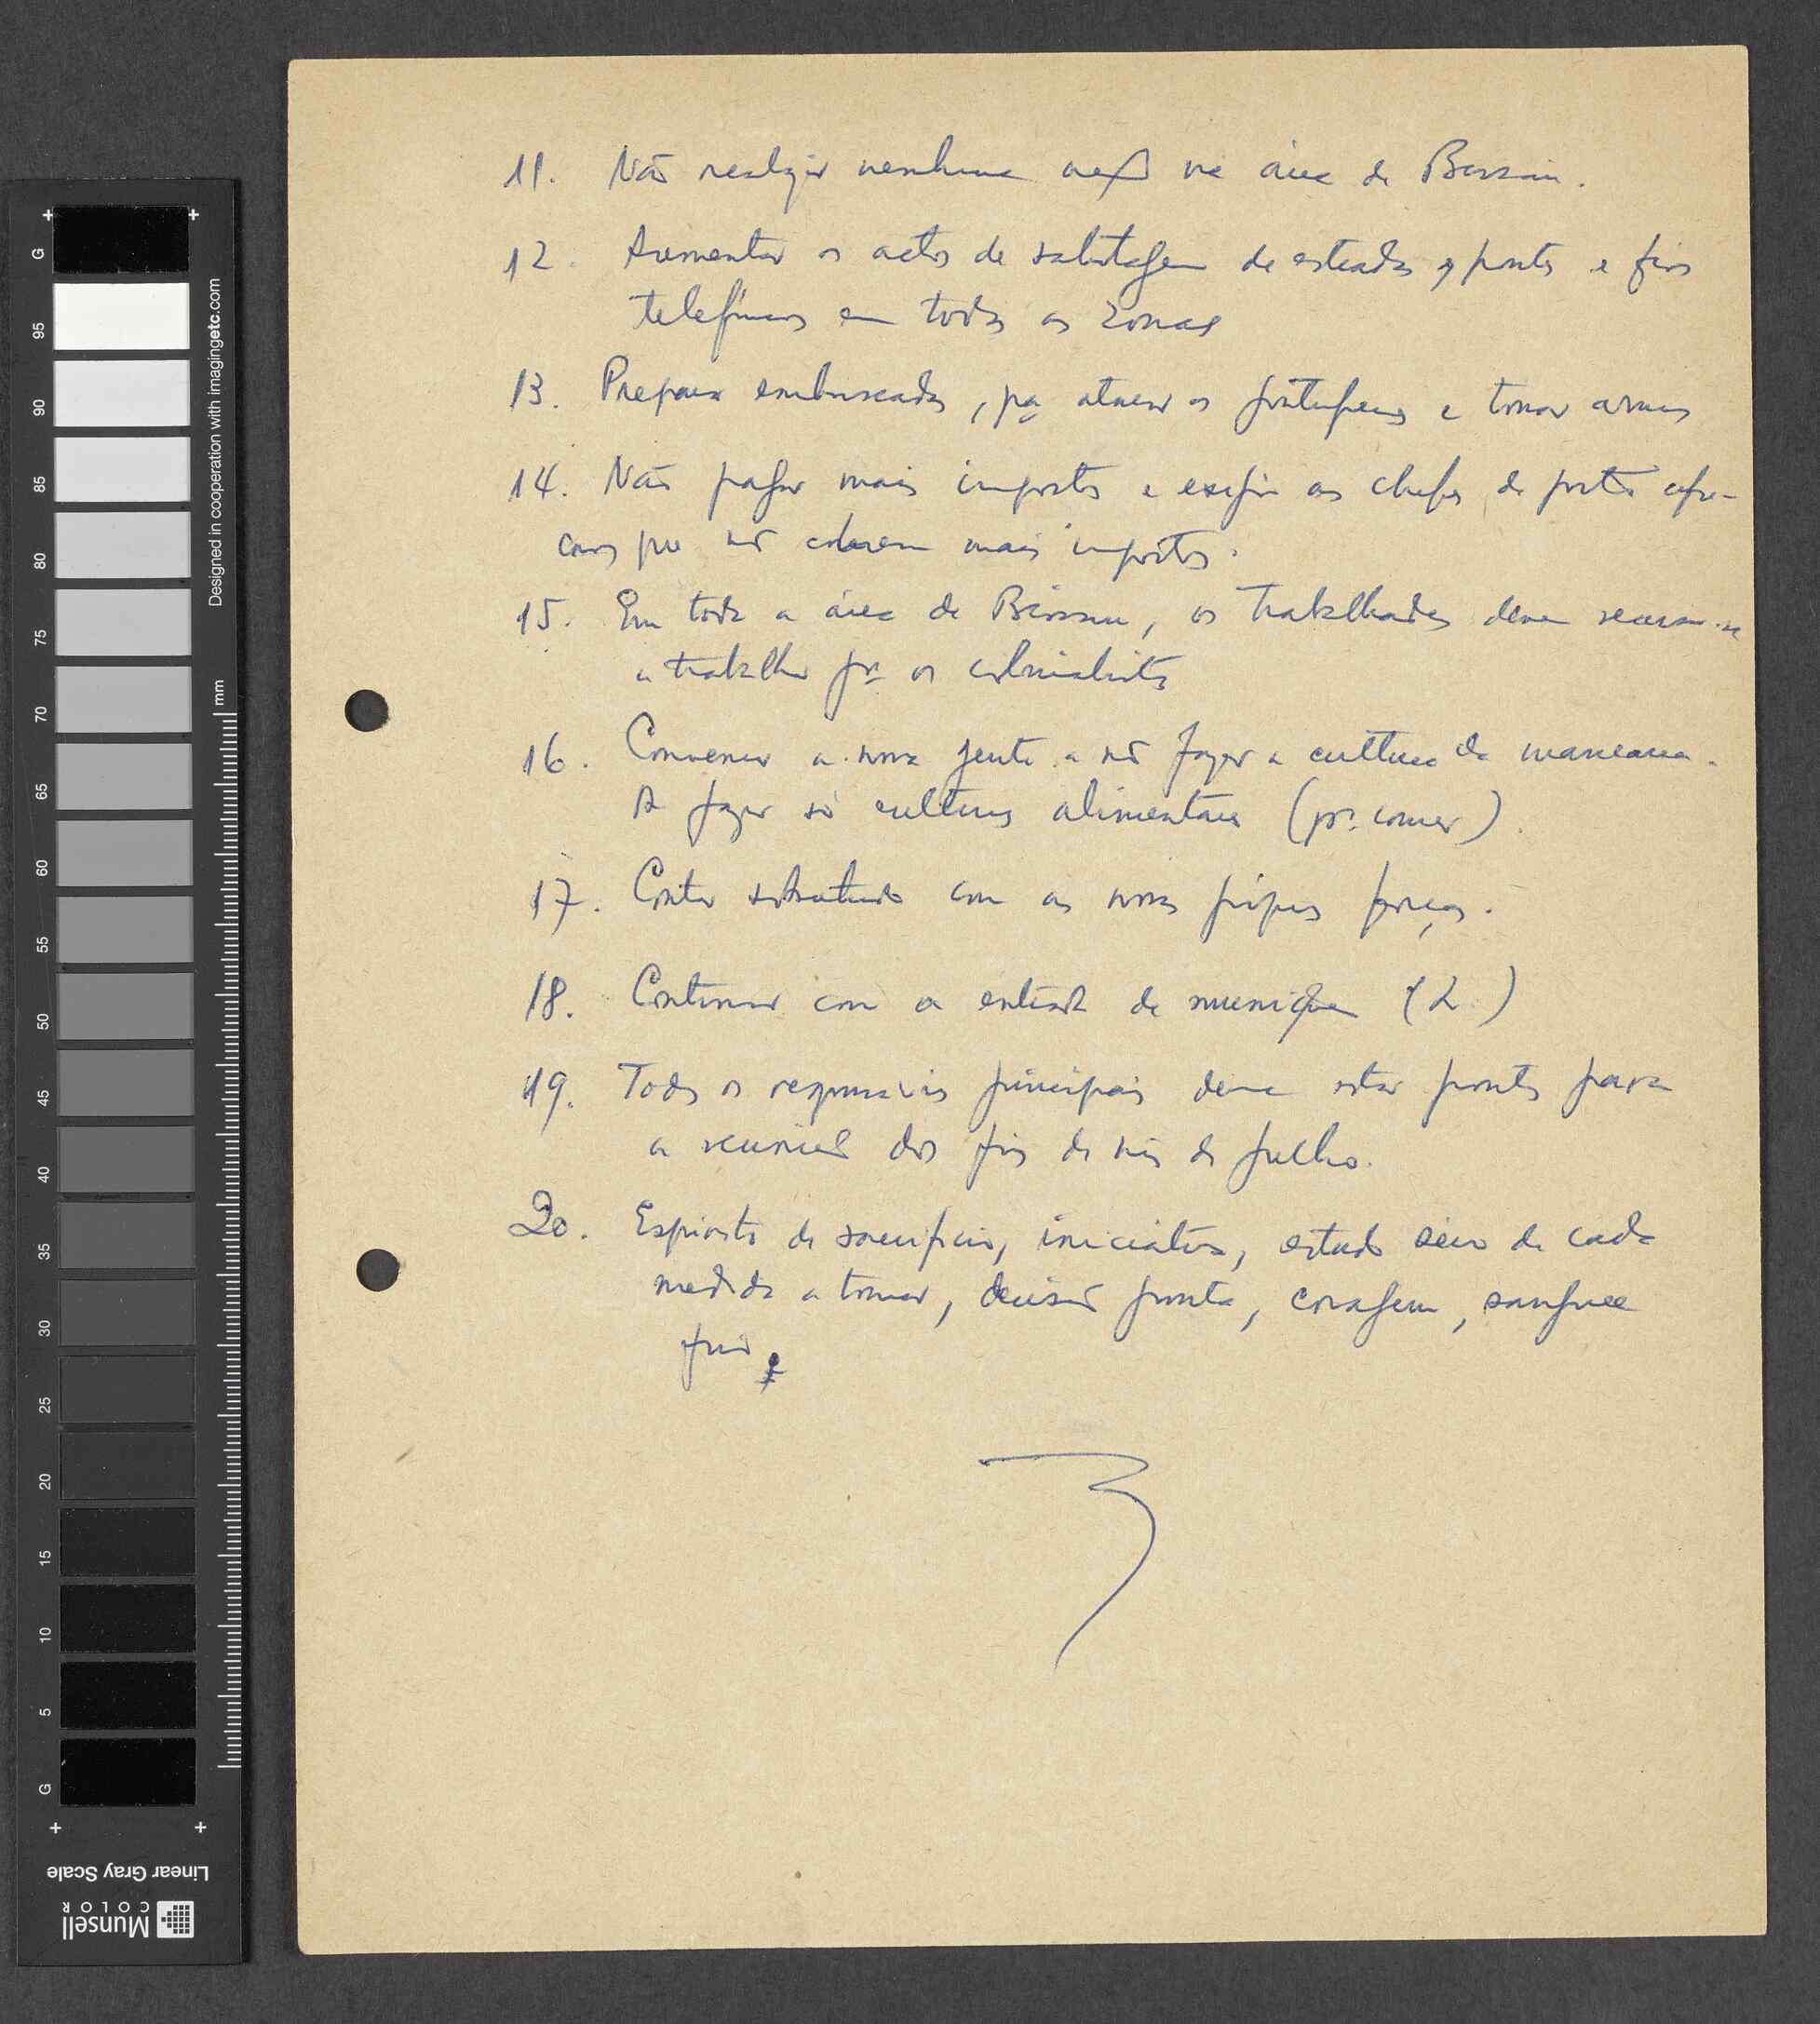 11. Não realizar nenhuma acção na área de Bissau.
12. Aumentar os actos de sabotagem de estradas, pontes e fios
telefónicos em todas as zonas
13. Preparar emboscadas, pa atacar os portugueses e tomar armas
14. Não pagar mais impostos e exigir aos chefes de posto afri-
canos que não cobrem mais impostos.
15. Em toda a área de Bissau, os trabalhadores devem recusar-se
a trabalhar pra os colonialistas
16. Convencer a nossa gente a não fazer a cultura da mancarra.
A fazer só culturas alimentares (pra comer).
17. Contar sobretudo com as nossas próprias forças.
18. Continuar com a entrada de munições (L.)
19. Todos os responsáveis principais devem estar prontos para
a reunião dos fins do mês de Julho.
20. Espírito de sacrifício, iniciativa, estudo sério de cada
medida a tomar, decisão pronta, coragem, sangue
frio
G
95
90
85
80
75
70
65
60
55
50
45
40
35
30
25
20
15
10
5
G
mm
Designed in cooperation with imagingetc.com
Linear Gray Scale
Munsell
COLOR